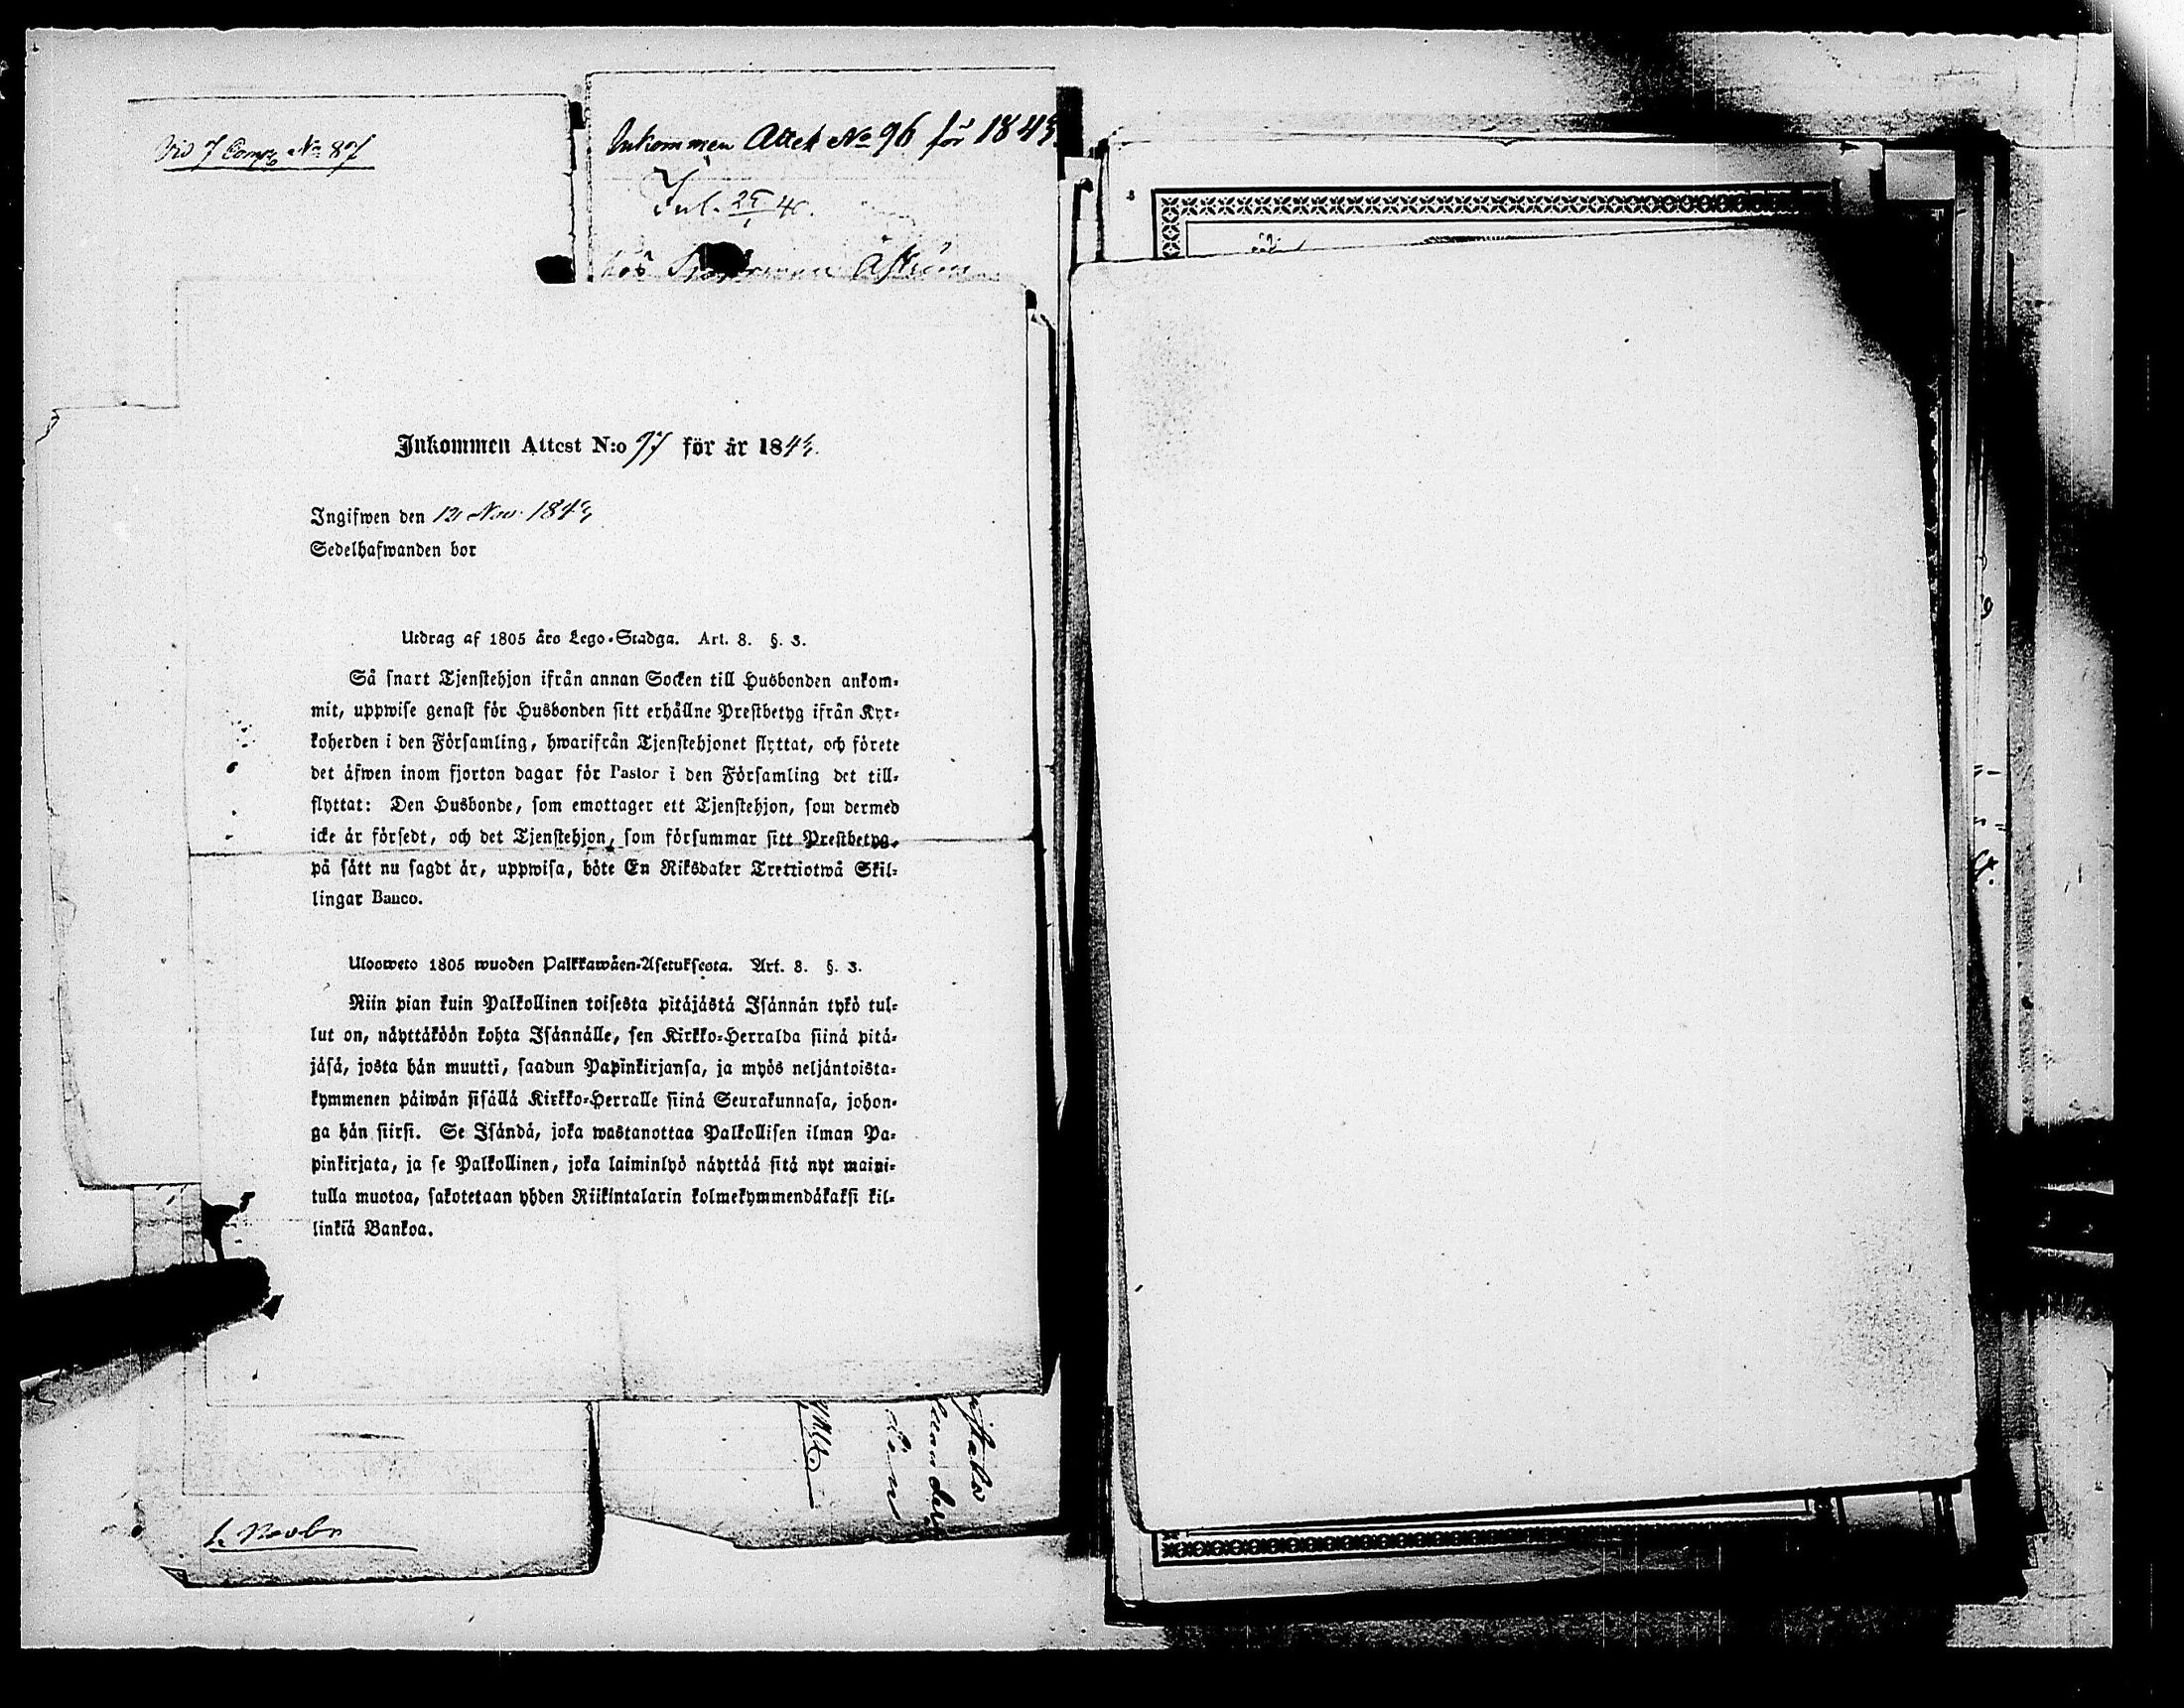 Vid 7 Comp. No 87
Inkommen Attest No 96 för 1845.
hos Åström
Inkommen Attest N:o 97 för år 1845.
Ingifwen den 12 Nov. 1845
Sedelhafwanden bor
Utdrag af 1805 års Lego-Stadga. Art. 8. §. 3.
Så snart Tjenstehjon ifrån annan Socken till Husbonden ankom-
mit, uppwise genast för Husbonden sitt erhållne Prestbetyg ifrån Kyr-
koherden i den Församling, hwarifrån Tjenstehjonet flyttat, och förete
det äfwen inom fjorton dagar för Pastor i den Församling det till-
flyttat: Den Husbonde, som emottager ett Tjenstehjon, som dermed
icke är försedt, och det Tjenstehjon, som försummar sitt Prestbetyg,
på sätt nu sagdt är, uppwisa, böte En Riksdaler Trettiotwå Skil-
lingar Banco.
Ulosweto 1805 wuoden Palkkawäen-Asetuksesta. Art. 8. §. 3.
Niin pian kuin Palkollinen toisesta pitäjästä Isännän tykö tul-
lut on, näyttäköön kohta Isännälle, sen Kirkko-Herralda siinä pitä-
jäsä, josta hän muutti, saadun Papinkirjansa, ja myös neljäntoista-
kymmenen päiwän sisällä Kirkko-Herralle siinä Seurakunnasa, johon-
ga hän siirsi. Se Isändä, joka wastanottaa Palkollisen ilman Pa-
pinkirjata, ja se Palkollinen, joka laiminlyö näyttää sitä nyt maini-
tulla muotoa, sakotetaan yhden Riikintalarin kolmekymmendäkaksi kil-
linkiä Bankoa.